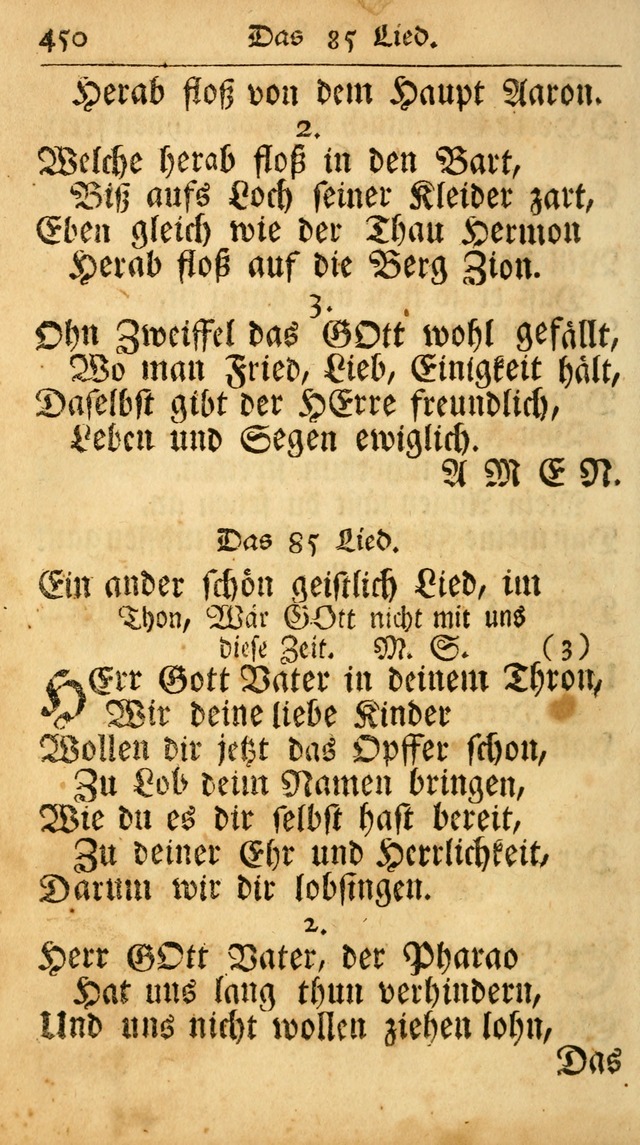 450 Das 85 Lied.
Herab floß von dem Haupt Aaron.
2.
Welche herab floß in den Bart,
Biß aufs Loch seiner Kleider zart,
Eben gleich wie der Thau Hermon
Herab floß auf die Berg Zion.
3.
Ohn Zweiffel das GOtt wohl gefällt,
Wo man Fried, Lieb, Einigkeit hält,
Daselbst gibt der HErre freundlich,
Leben und Segen ewiglich.
A M E N.
Das 85 Lied.
Ein ander schön geistlich Lied, im
Thon, Wär GOtt nicht mit uns
diese Zeit. M. S. (3)
HErr Gott Vater in deinem Thron,
Wir deine liebe Kinder
Wollen dir jetzt das Opffer schon,
Zu Lob deim Namen bringen,
Wie du es dir selbst hast bereit,
Zu deiner Ehr und Herrlichkeit,
Darum wir dir lobsingen.
2.
Herr GOtt Vater, der Pharao
Hat uns lang thun verhindern,
Und uns nicht wollen ziehen lohn,
Das